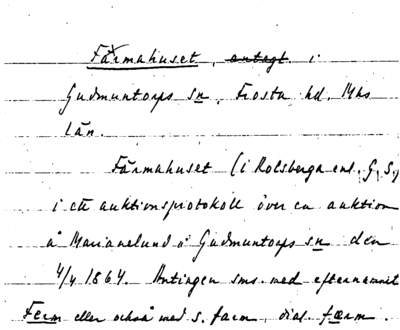 Färmahuset, antagt i
Gudmuntorps sn, Frosta hd, Mhs
län.
Färmahuset (i Rolsberga enl. G.S.)
i ett auktionsprotokoll över en auktion
å Marianelund i Gudmuntorps sn den
4/4 1864. Antingen sms. med efternamnet
Ferm eller också med s. farm, dial. færm.